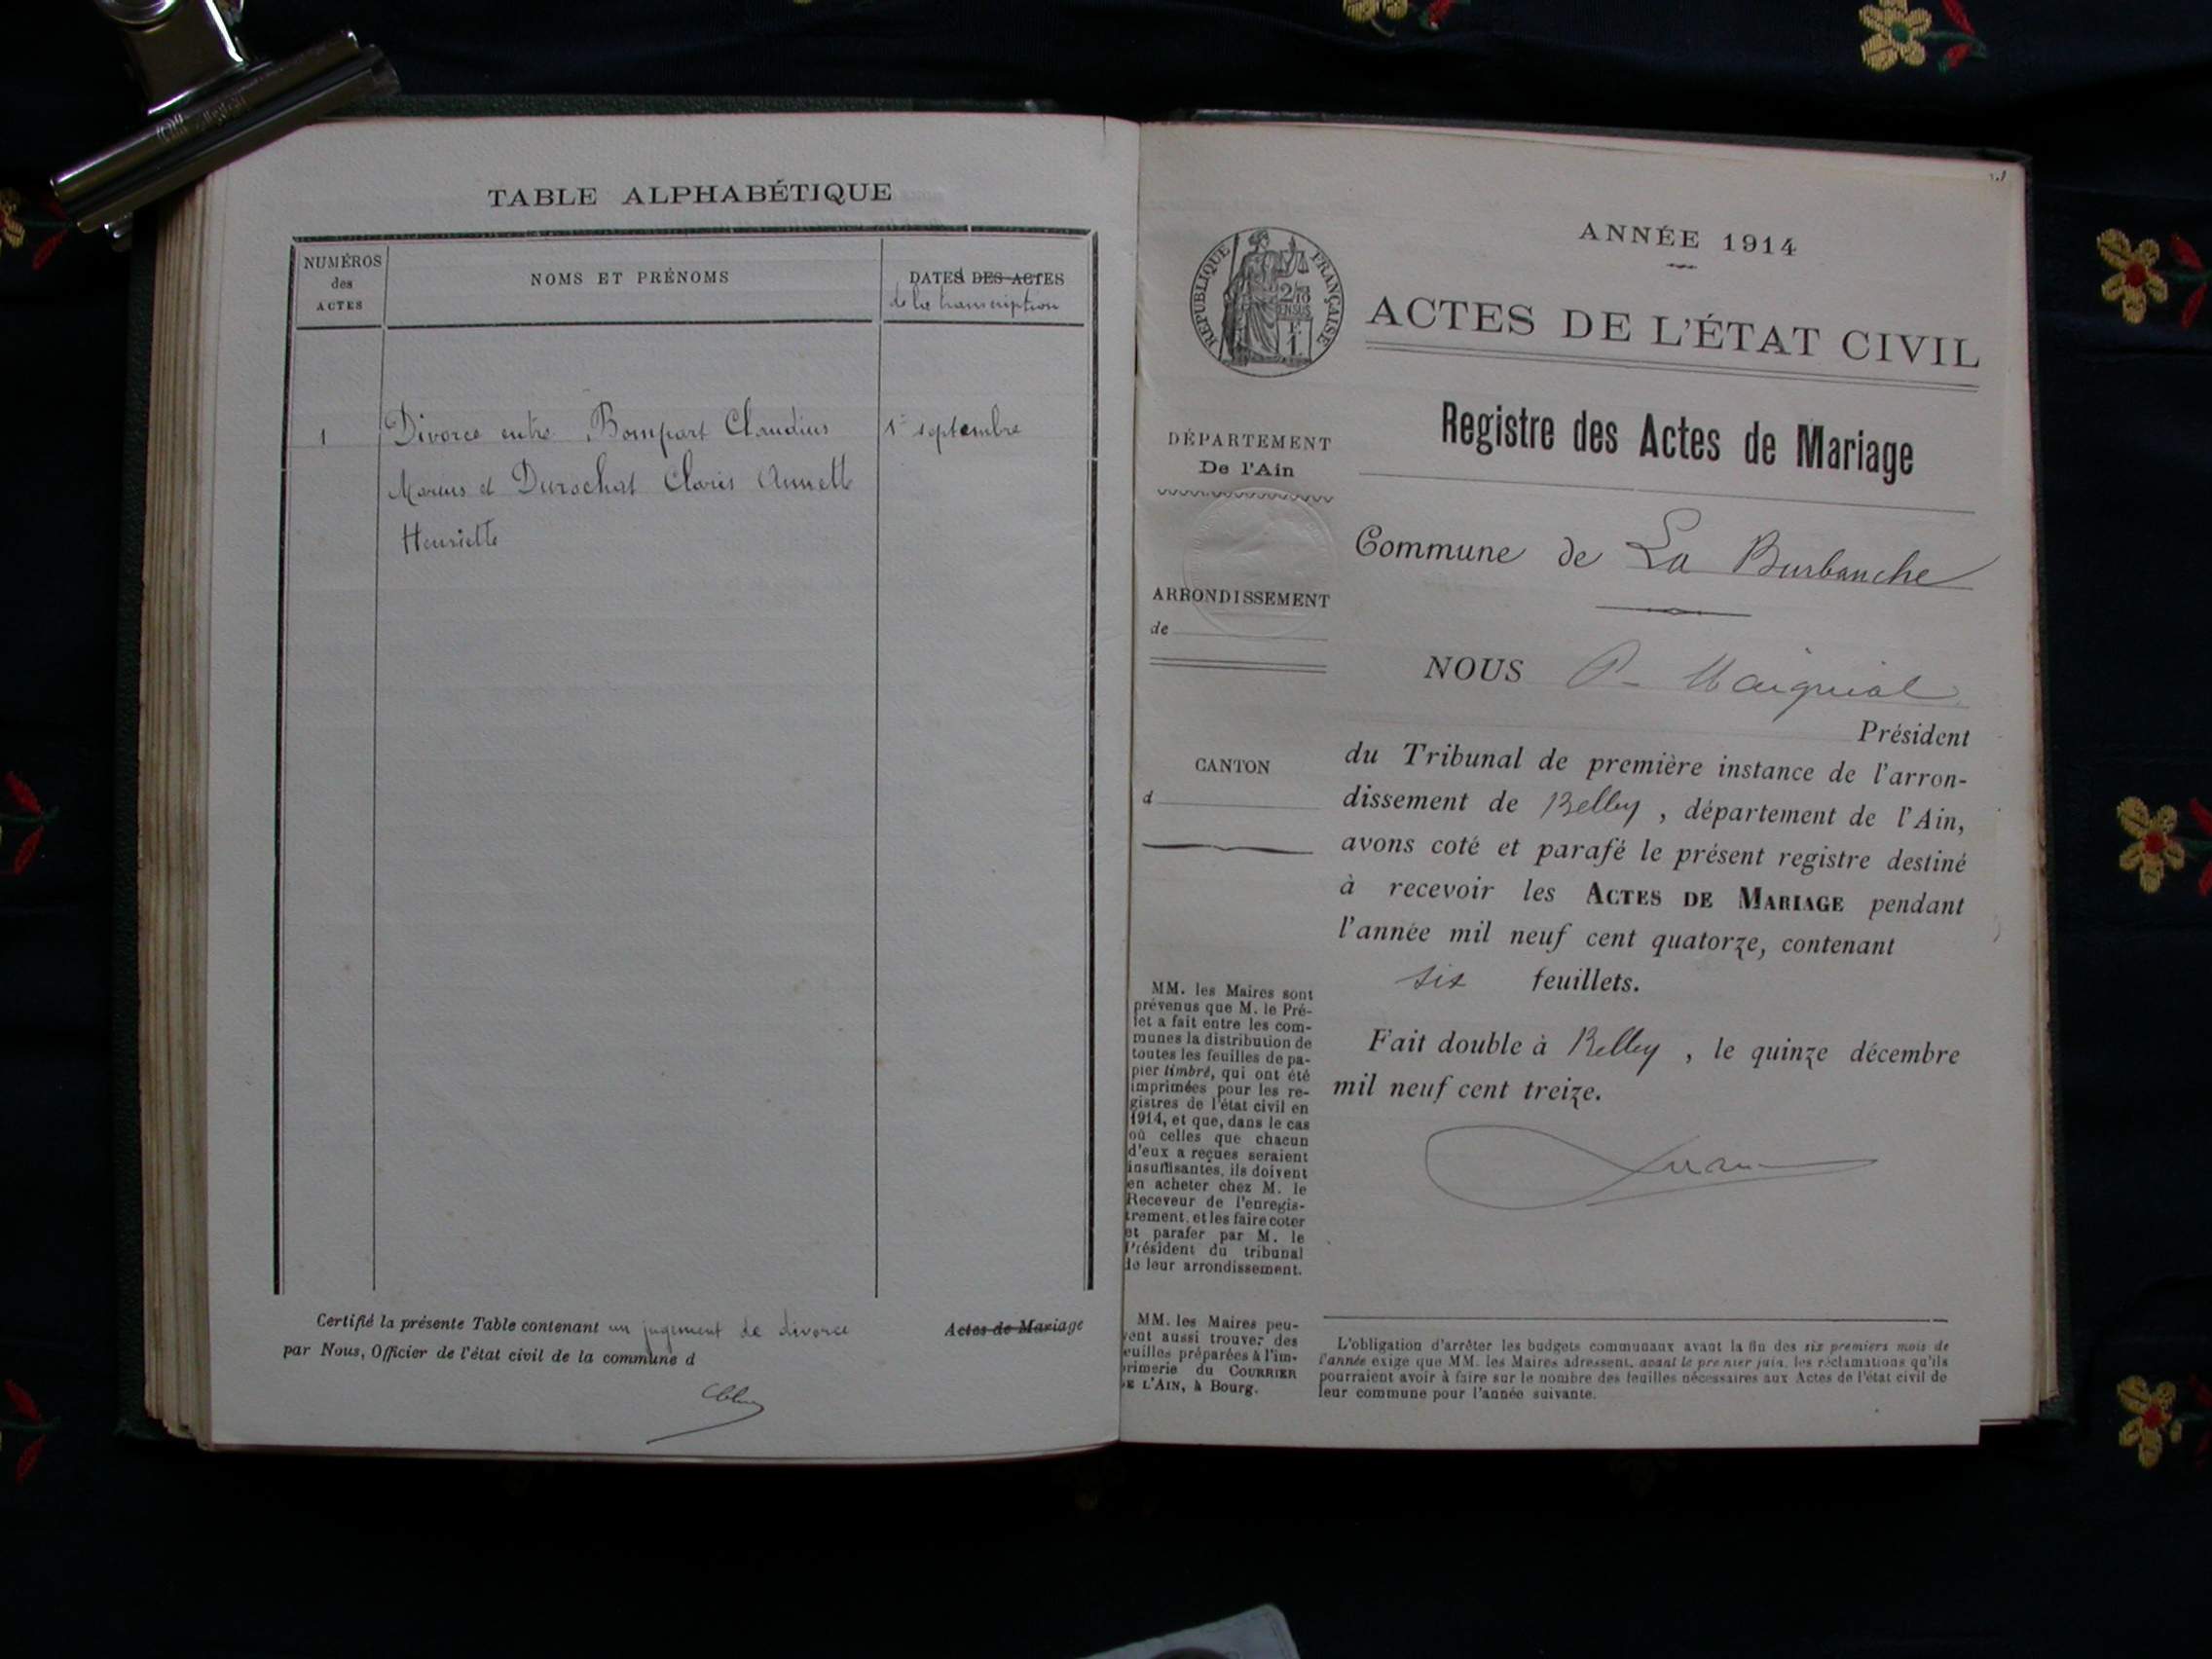 TABLE ALPHABÉTIQUE
NUMÉROS
des
ACTES
NOMS ET PRÉNOMS
DATES DES ACTES
de la transcription
1
Divorce entre Bompart Claudius
1er septembre
Marius et Durochat Claris Annette
Henriette
Certifié la présente Table contenant un jugement de divorce Actes de Mariage
par Nous, Officier de l'état civil de la commune d
ANNÉE 1914
RÉPUBLIQUE FRANÇAISE
ACTES DE L'ÉTAT CIVIL
Registre des Actes de Mariage
DÉPARTEMENT
De l'Ain
Commune de La Burbanche
ARRONDISSEMENT
de
NOUS
Président
CANTON
d
du Tribunal de première instance de l'arron-
dissement de Belley, département de l'Ain,
avons coté et parafé le présent registre destiné
à recevoir les ACTES DE MARIAGE pendant
l'année mil neuf cent quatorze, contenant
six feuillets.
Fait double à Belley, le quinze décembre
mil neuf cent treize.
MM. les Maires sont
prévenus que M. le Pré-
fet a fait entre les com-
munes la distribution de
toutes les feuilles de pa-
pier timbré, qui ont été
imprimées pour les re-
gistres de l'état civil en
1914, et que, dans le cas
où celles que chacun
d'eux a reçues seraient
insuffisantes, ils doivent
en acheter chez M. le
Receveur de l'enregis-
trement, et les faire coter
et parafer par M. le
Président du tribunal
de leur arrondissement.
MM. les Maires peu-
vent aussi trouver des
feuilles préparées à l'im-
primerie du COURRIER
DE L'AIN, à Bourg.
L'obligation d'arrêter les budgets communaux avant la fin des six premiers mois de
l'année exige que MM. les Maires adressent, avant le premier juin, les réclamations qu'ils
pourraient avoir à faire sur le nombre des feuilles nécessaires aux Actes de l'état civil de
leur commune pour l'année suivante.